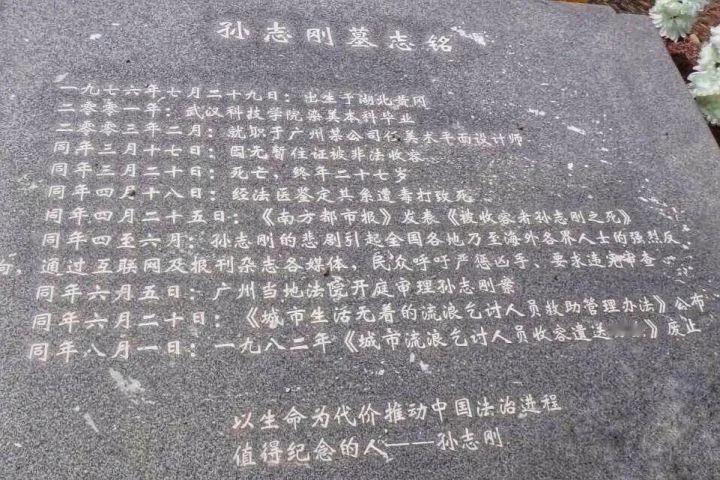 孙志刚墓志铭
一九七六年七月二十九日：出生于湖北黄冈
二零零一年：武汉科技学院染美本科毕业
二零零三年二月：就职于广州某公司任美术平面设计师
同年三月十七日：因无暂住证被非法收容
同年三月二十日：死亡，终年二十七岁
同年四月十八日：经法医鉴定其系遭毒打致死
同年四月二十五日：《南方都市报》发表《被收容者孙志刚之死》
同年四至六月：孙志刚的悲剧引起全国各地乃至海外各界人士的强烈反
响，通过互联网及报刊杂志各媒体，民众呼吁严惩凶手、要求违宪审查
同年六月五日：广州当地法院开庭审理孙志刚案
同年六月二十日：《城市生活无着的流浪乞讨人员救助管理办法》公布
同年八月一日：一九八二年《城市流浪乞讨人员收容遣送……》废止
以生命为代价推动中国法治进程
值得纪念的人——孙志刚